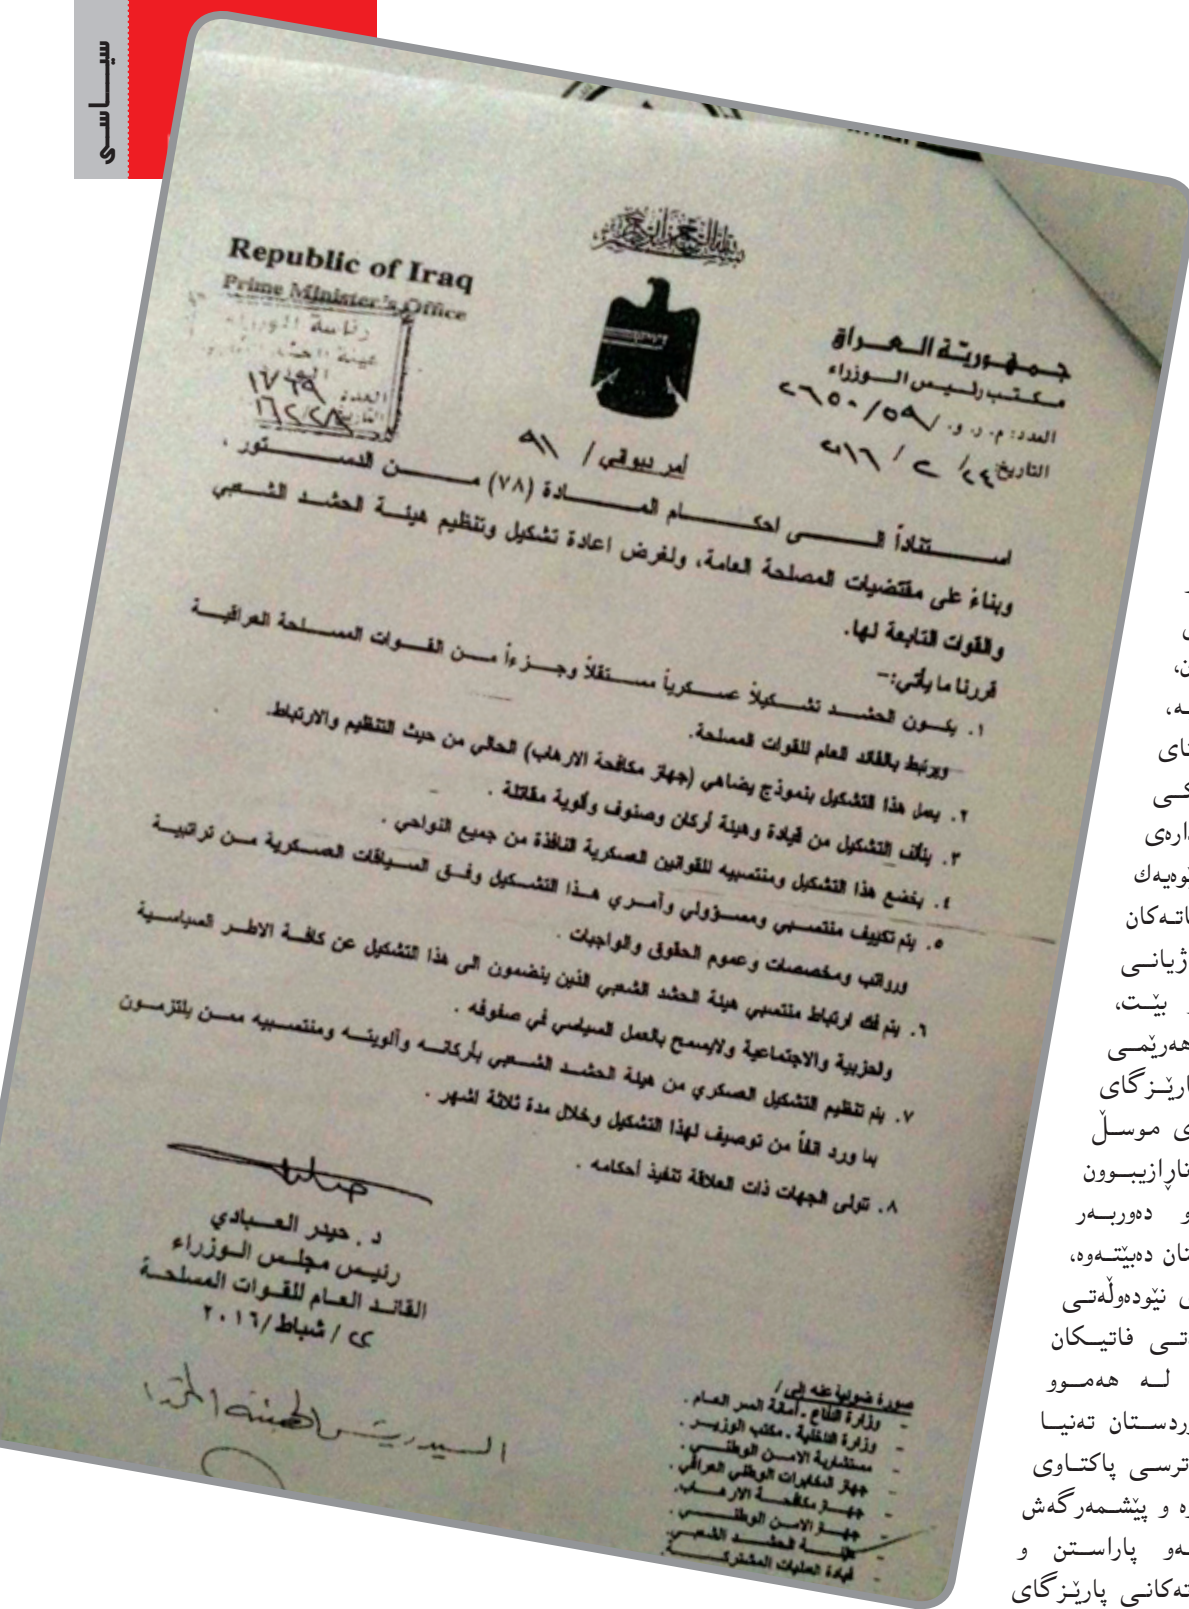 سیـــاسی
Republic of Iraq
Prime Minister's Office
رئاسة الوزراء
العدد ١٧٦٩
التاريخ ١٦/٢/٢٨
جـمـهـوريـّة الـعـــراق
مـكـتـب رئـيـس الـــوزراء
العدد: م. ر. و. /٥٩/٢٦٥٠
التاريخ: ٢٤/ ٢ / ٢٠١٦
أمر ديواني / ٩١
اســـتناداً الـــى احكـــام المـــادة (٧٨) مـــن الدســـتور .
وبناءً على مقتضيات المصلحة العامة، ولغرض اعادة تشكيل وتنظيم هيئة الحشد الشعبي
والقوات التابعة لها.
قررنا ما يأتي:-
١. يكــون الحشــد تشــكيلاً عســكرياً مســتقلاً وجــزءاً مــن القــوات المســلحة العراقيــة
ويرتبط بالقائد العام للقوات المسلحة.
٢. يعمل هذا التشكيل بنموذج يضاهي (جهاز مكافحة الارهاب) الحالي من حيث التنظيم والارتباط.
٣. يتألف التشكيل من قيادة وهيئة أركان وصنوف وألوية مقاتلة .
٤. يخضع هذا التشكيل ومنتسبيه للقوانين العسكرية النافذة من جميع النواحي .
٥. يتم تكييف منتسبي ومسـؤولي وآمـري هـذا التشـكيل وفـق السـياقات العسـكرية مـن تراتبيـة
ورواتب ومخصصات وعموم الحقوق والواجبات .
٦. يتم فك ارتباط منتسبي هيئة الحشد الشعبي الذين ينضمون الى هذا التشكيل عن كافة الاطر السياسية
والحزبية والاجتماعية ولايسمح بالعمل السياسي في صفوفه .
٧. يتم تنظيم التشكيل العسكري من هيئة الحشـد الشـعبي بأركانـه وألويتـه ومنتسـبيه ممـن يلتزمـون
بما ورد انفاً من توصيف لهذا التشكيل وخلال مدة ثلاثة اشهر .
٨. تتولى الجهات ذات العلاقة تنفيذ أحكامه .
د . حيدر العـــبادي
رئيس مجلـس الـوزراء
القائـد العـام للقـوات المسلحـة
٢٤ / شباط/٢٠١٦
السيد رئيس الهيئة المحترم
صورة ضوئية عنه إلى /
- وزارة الدفاع ـ أمانة السر العـام .
- وزارة الداخلية ـ مكتب الوزيــر .
- مستشارية الامــن الوطنــي .
- جهاز المخابرات الوطني العراقي .
- جهــاز مكافحــة الارهــاب.
- جهــاز الامــن الوطنــي .
- هيئــة الحشــد الشعبــي.
- قيادة العمليات المشتركــة.
ن،
ـه،
تای
کـی
دارەی
ۆوەیەك
اتـەکان
ژیانـی
بێـت،
هەرێمـی
ارێـزگای
ی موسـڵ
ناڕازیبـوون
و دەوربـەر
تان دەبێتـەوە،
ی نێودەوڵەتـی
ەتـی ڤاتیـکان
لـە هەمـوو
وردسـتان تەنیـا
ترسـی پاکتـاوی
رە و پێشـمەرگەش
ـەو پاراسـتن و
تەکانـی پارێـزگای